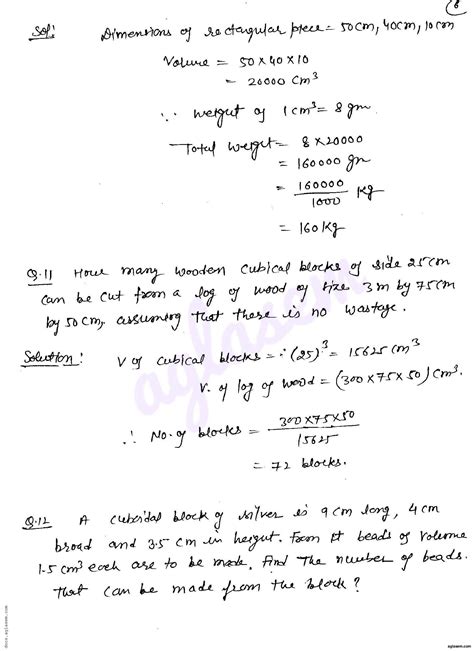 8
Sol: Dimensions of rectangular piece = 50cm, 40cm, 10cm
Volume = 50 × 40 × 10
= 20000 cm³
∵ weight of 1 cm³ = 8 gm.
Total weight = 8 × 20000
= 160000 gm
= 160000/1000 kg
= 160 kg
Q.11 How many wooden cubical blocks of side 25cm
can be cut from a log of wood of size 3 m by 75 cm
by 50 cm, assuming that there is no wastage.
Solution: V of cubical blocks = ∵ (25)³ = 15625 cm³
V. of log of wood = (300 × 75 × 50) cm³.
∴ No. of blocks = 300×75×50/15625
= 72 blocks.
Q.12 A cuboidal block of silver is 9 cm long, 4 cm
broad and 3.5 cm in height. From it beads of volume
1.5 cm³ each are to be made. Find the number of beads.
that can be made from the block?
aglasem
docs.aglasem.com
aglasem.com